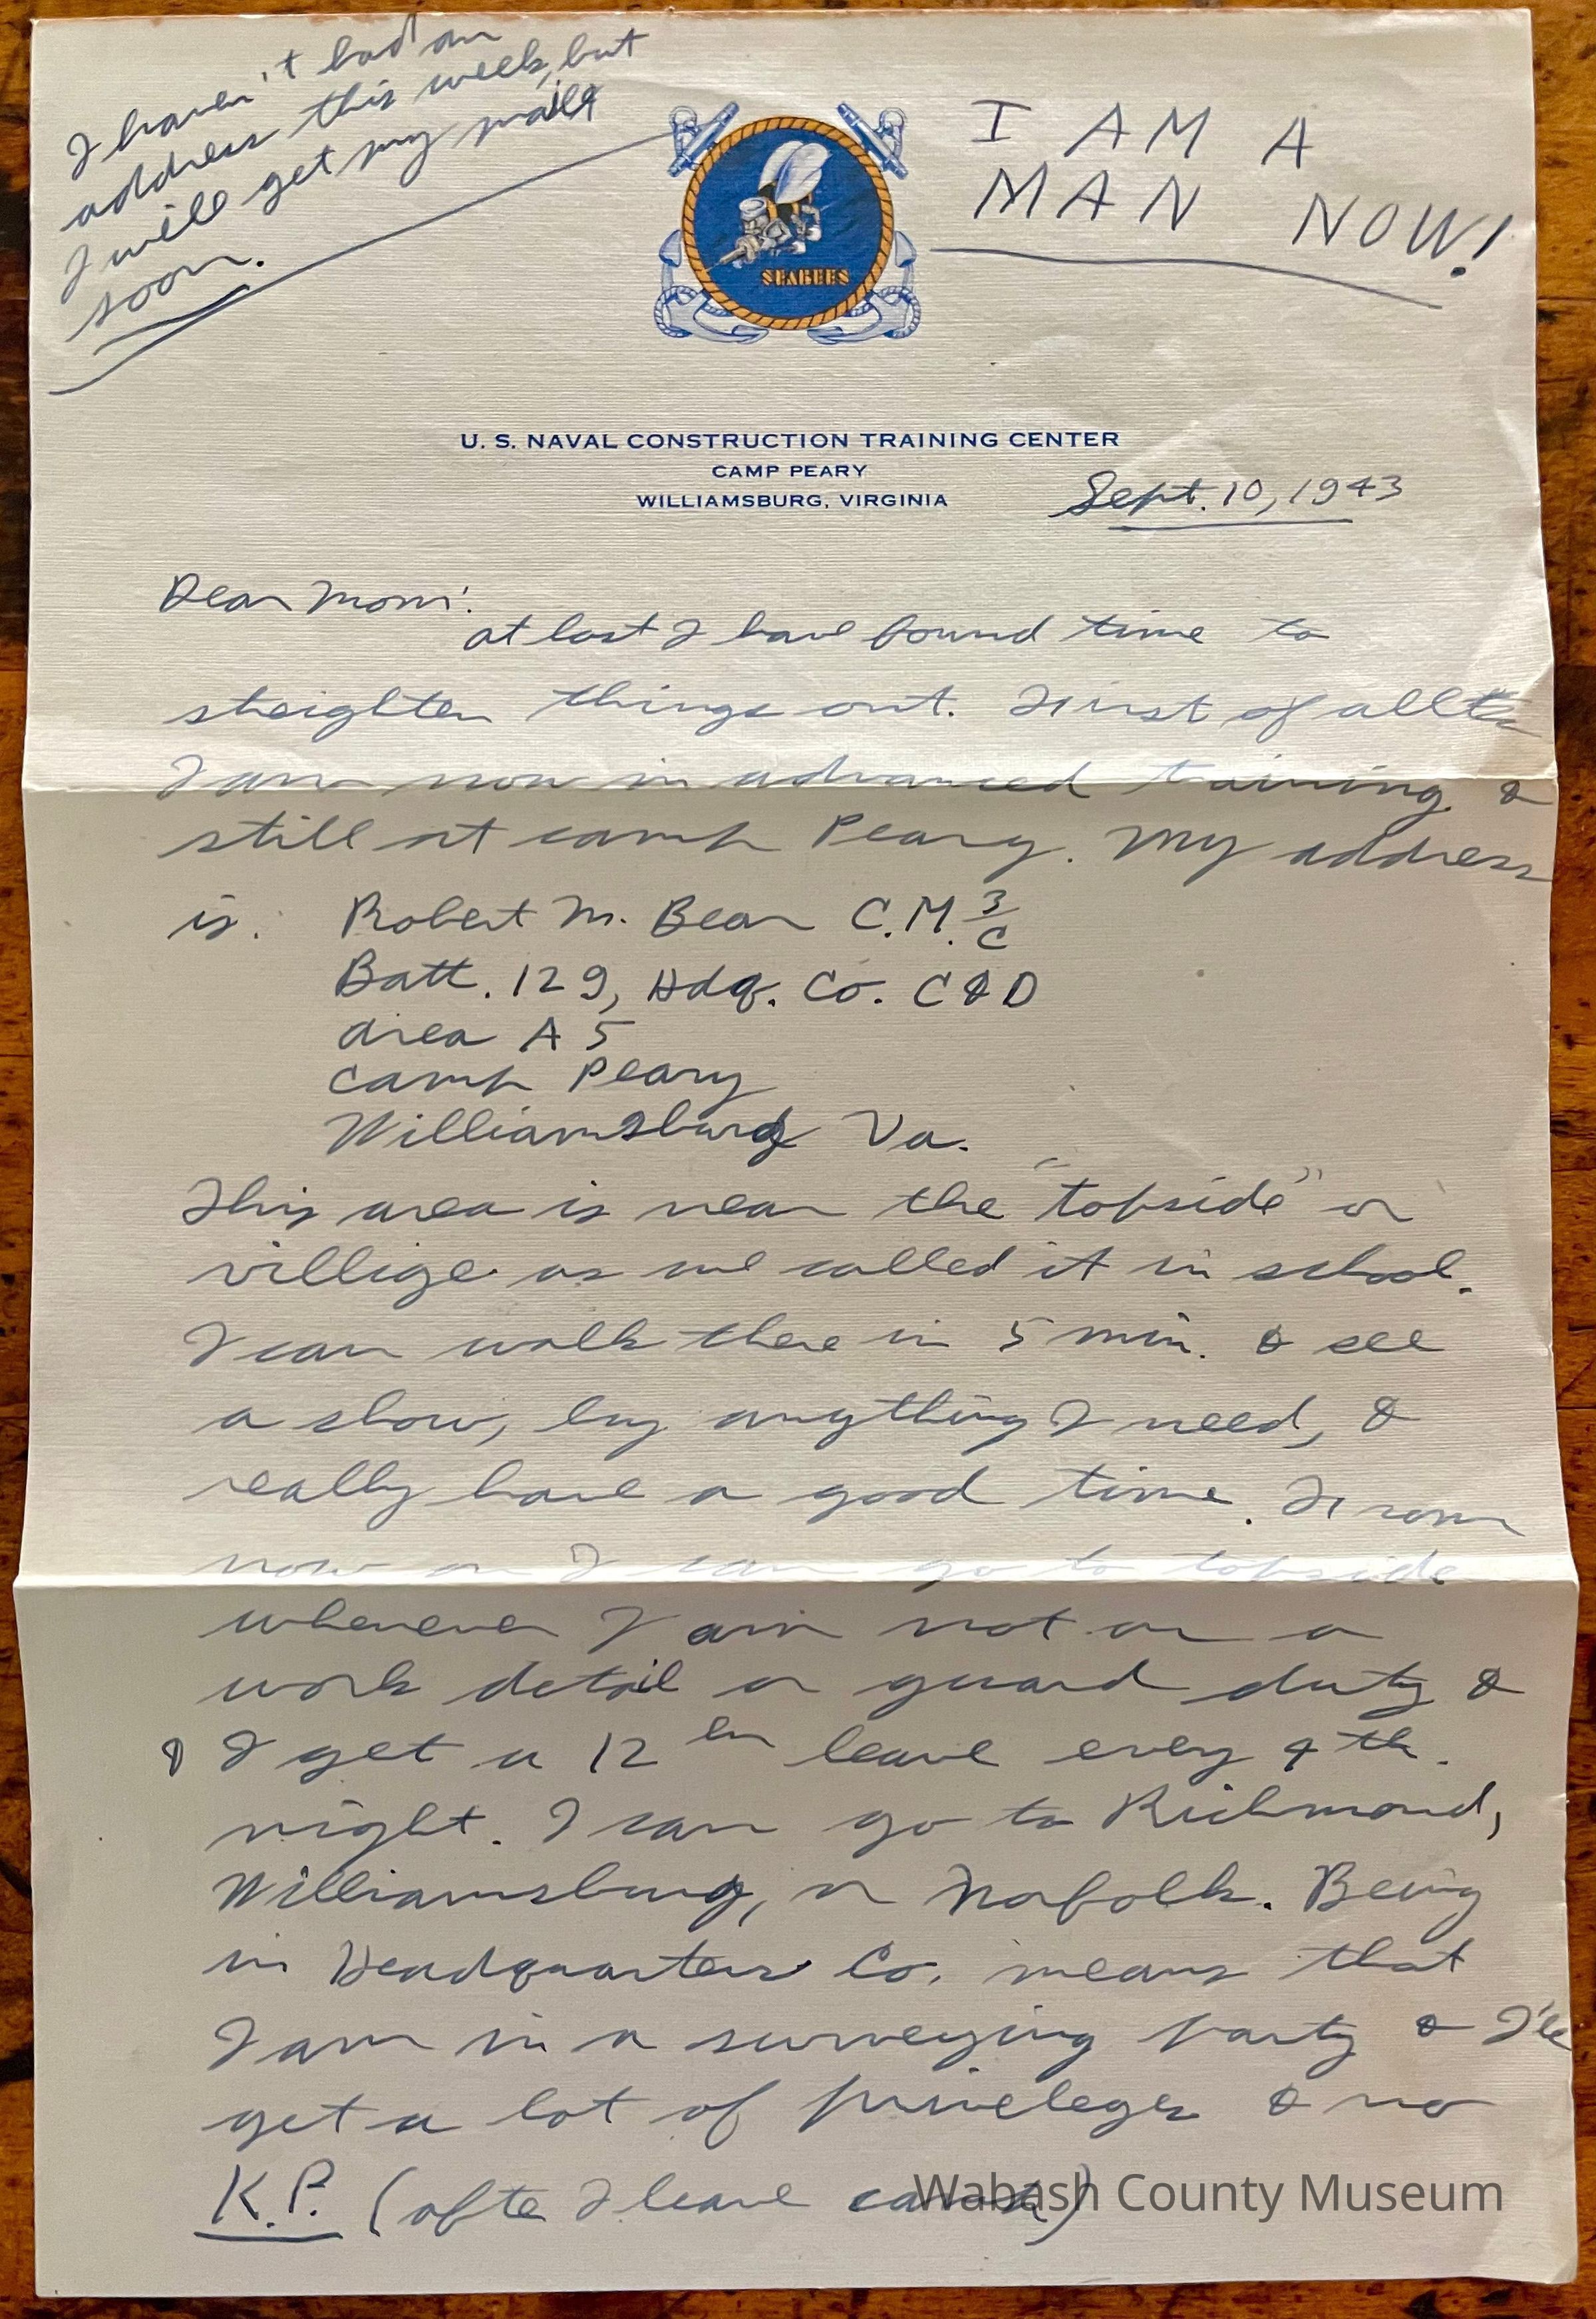 I haven't had an
address this week, but
I will get my mail
soon.
I AM A
MAN NOW!
SEABEES
U. S. NAVAL CONSTRUCTION TRAINING CENTER
CAMP PEARY
WILLIAMSBURG, VIRGINIA
Sept. 10, 1943
Dear Mom:
at last I have found time to
streighten things out. First of all
I am now in advanced training &
still at camp Peary. My address
is: Robert M. Bear C.M. 3/c
Batt. 129, Hdq. Co. C & D
area A 5
Camp Peary
Williamsburg Va.
This area is near the "topside" or
villige as we called it in school.
I can walk there in 5 min. & see
a show, buy anything I need, &
really have a good time. From
now on I can go to topside
whenever I am not on a
work detail or guard duty &
& I get a 12 hr leave every 4th.
night. I can go to Richmond,
Williamsburg, or Norfolk. Being
in Headquarters Co. means that
I am in a surveying party & I'll
get a lot of priveleges & no
K.P. (afte I leave camp)
Wabash County Museum